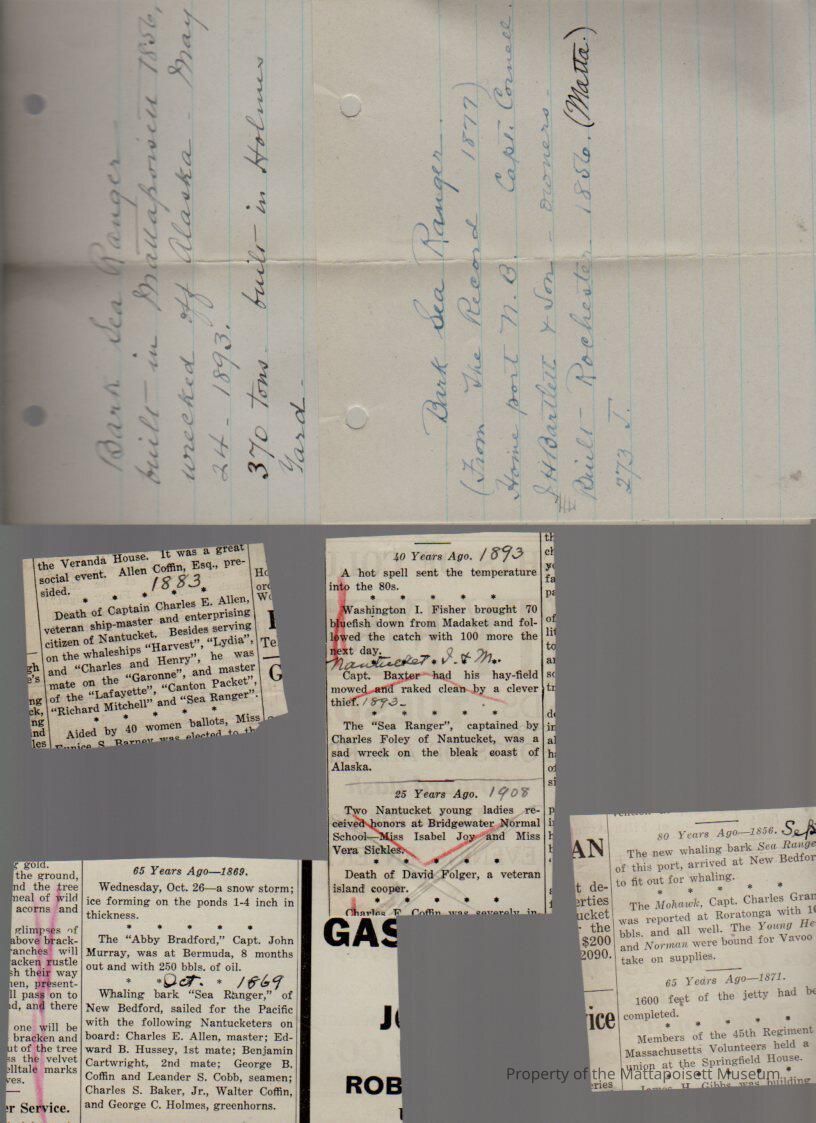 Bark Sea Ranger
built in Mattapoisett 1856,
wrecked off Alaska - May
24 - 1893.
370 tons built in Holmes
Yard -
Bark Sea Ranger
(From The Record 1877)
Home port N.B. Capt. Cornell.
J H Bartlett & Son - owners -
Built - Rochester 1856. (Matta.)
273 T.
the Veranda House. It was a great
social event. Allen Coffin, Esq., pre-
sided.
1883
Death of Captain Charles E. Allen,
veteran ship-master and enterprising
citizen of Nantucket. Besides serving
on the whaleships "Harvest", "Lydia",
and "Charles and Henry", he was
mate on the "Garonne", and master
of the "Lafayette", "Canton Packet",
"Richard Mitchell" and "Sea Ranger".
* * * * *
Aided by 40 women ballots, Miss
Eunice S. Barney was elected to th
40 Years Ago. 1893
A hot spell sent the temperature
into the 80s.
* * * * *
Washington I. Fisher brought 70
bluefish down from Madaket and fol-
lowed the catch with 100 more the
next day.
Nantucket. I. & M.
Capt. Baxter had his hay-field
mowed and raked clean by a clever
thief. 1893-
* * * * *
The "Sea Ranger", captained by
Charles Foley of Nantucket, was a
sad wreck on the bleak coast of
Alaska.
25 Years Ago. 1908
Two Nantucket young ladies re-
ceived honors at Bridgewater Normal
School—Miss Isabel Joy and Miss
Vera Sickles.
* * * * *
Death of David Folger, a veteran
island cooper.
* * * * *
Charles F. Coffin was severely in-
80 Years Ago—1856. Sep
The new whaling bark Sea Range
of this port, arrived at New Bedfor
to fit out for whaling.
* * * * *
The Mohawk, Capt. Charles Gran
was reported at Roratonga with 10
bbls. and all well. The Young He
and Norman were bound for Vavoo
take on supplies.
65 Years Ago—1871.
1600 feet of the jetty had be
completed.
* * * * *
Members of the 45th Regiment
Massachusetts Volunteers held a
union at the Springfield House.
James H. Gibbs was building
AN
t de-
erties
ucket
the
$200
2090.
vice
eries
g gold.
the ground,
nd the tree
meal of wild
acorns and
glimpses of
above brack-
ranches will
racken rustle
sh their way
nen, present-
ll pass on to
d, and there
one will be
bracken and
ut of the tree
ss the velvet
elltale marks
ves.
er Service.
65 Years Ago—1869.
Wednesday, Oct. 26—a snow storm;
ice forming on the ponds 1-4 inch in
thickness.
* * * * *
The "Abby Bradford," Capt. John
Murray, was at Bermuda, 8 months
out and with 250 bbls. of oil.
Oct. 1869
Whaling bark "Sea Ranger," of
New Bedford, sailed for the Pacific
with the following Nantucketers on
board: Charles E. Allen, master; Ed-
ward B. Hussey, 1st mate; Benjamin
Cartwright, 2nd mate; George B.
Coffin and Leander S. Cobb, seamen;
Charles S. Baker, Jr., Walter Coffin,
and George C. Holmes, greenhorns.
GAS
ROB
Property of the Mattapoisett Museum